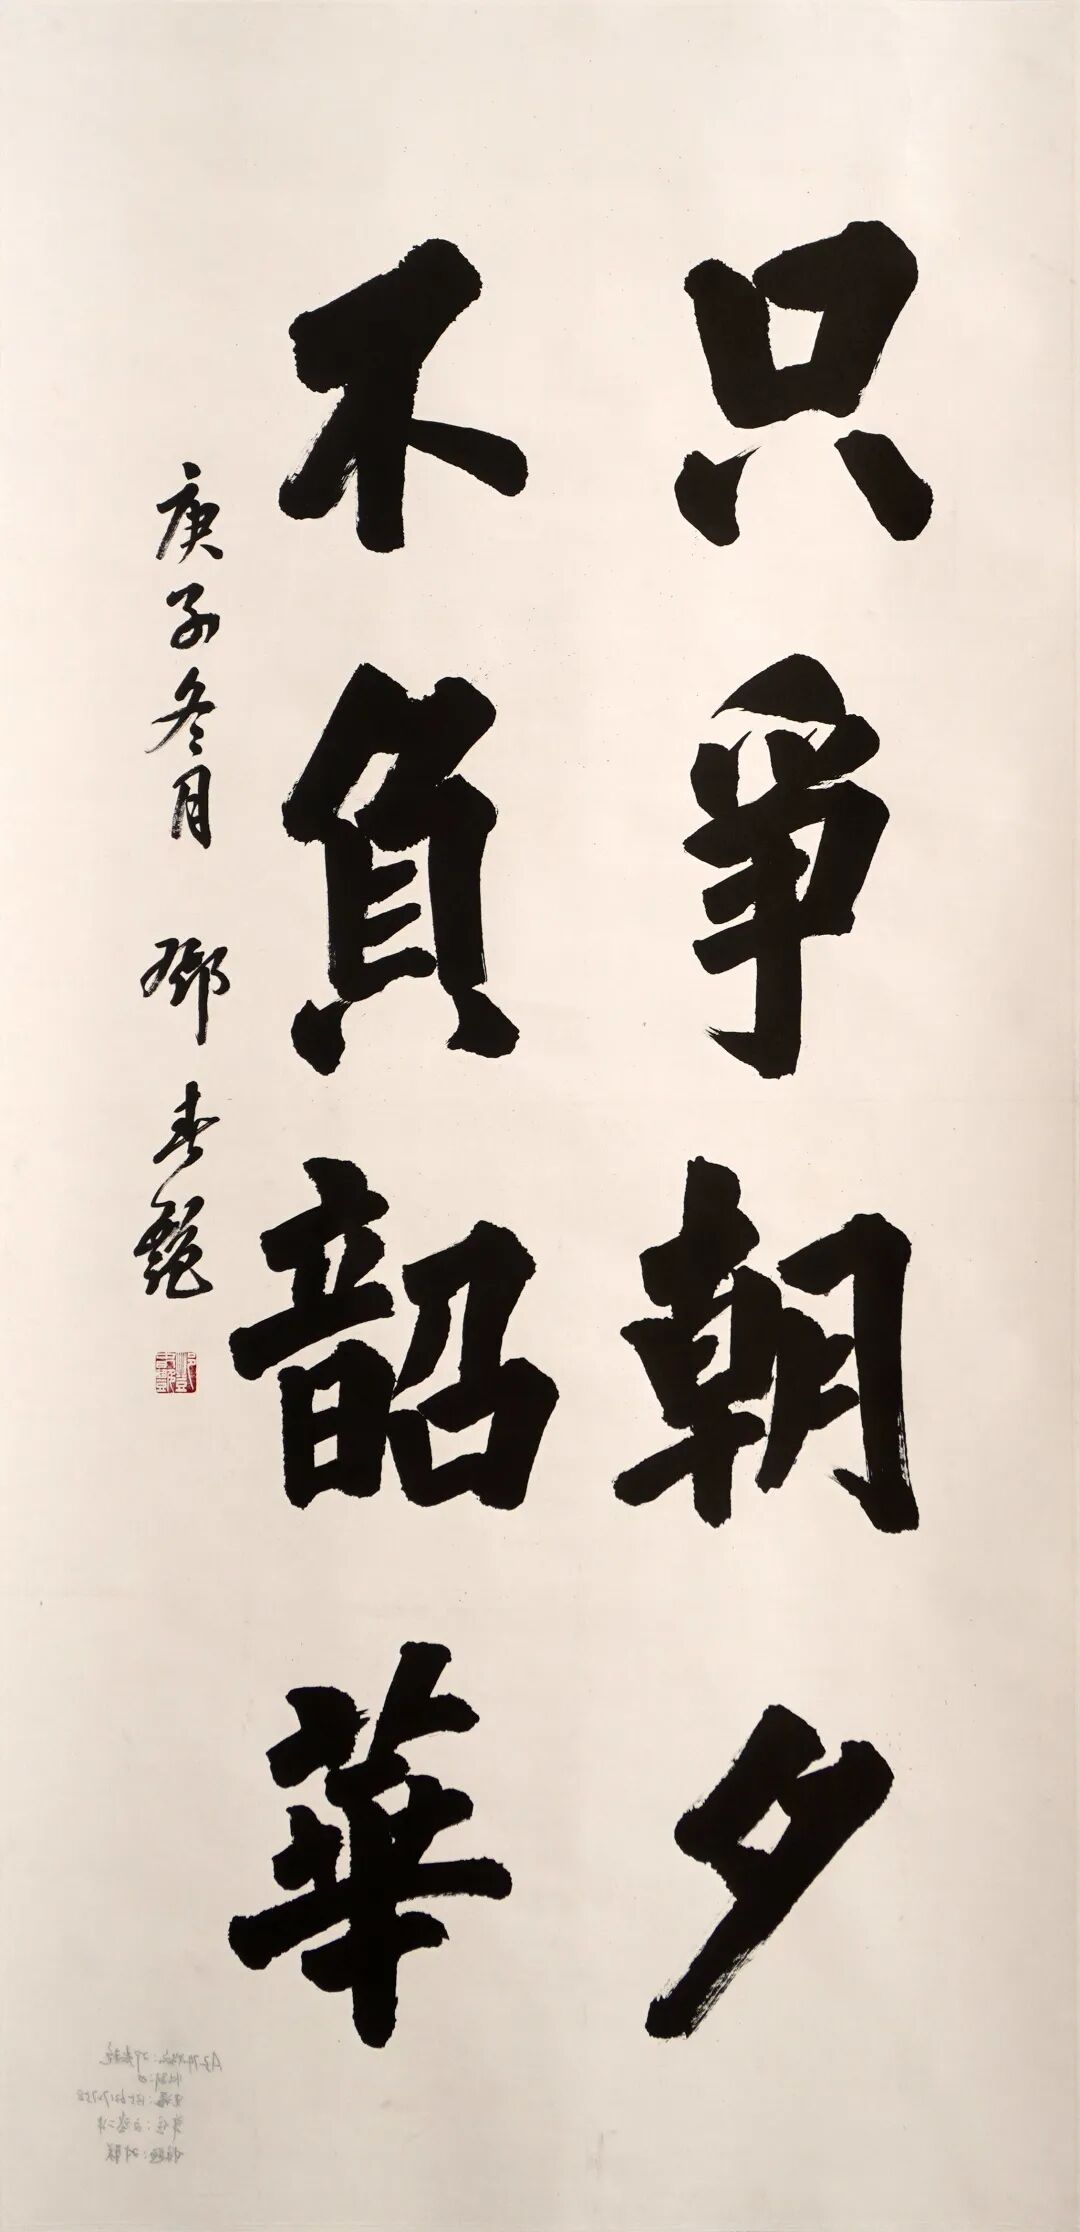 只爭朝夕
不負韶華
庚子冬月 鄧春艷